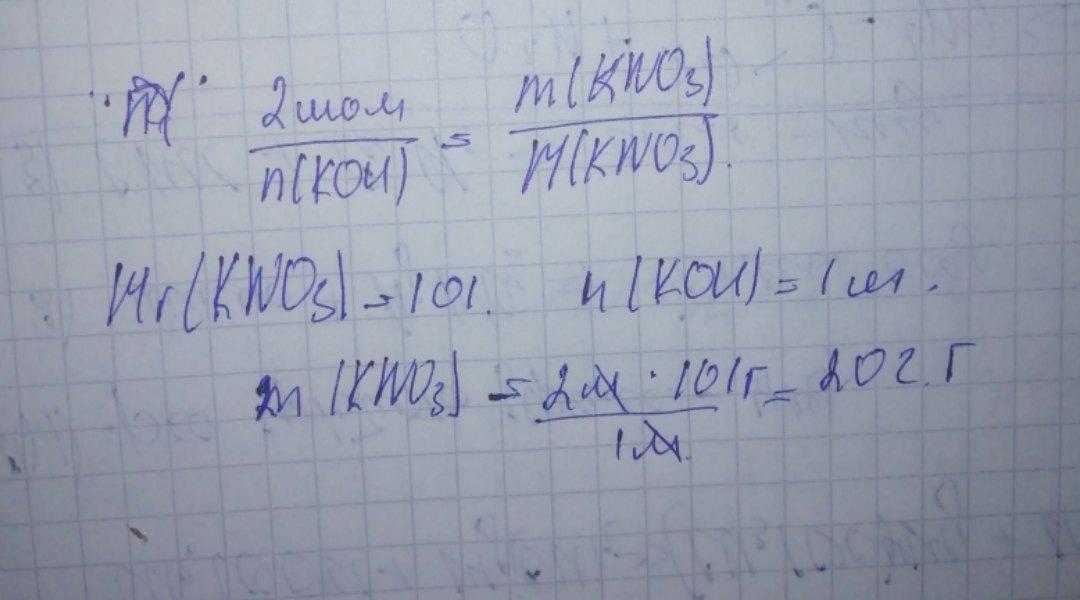 2мол / n(KOH) = m(KNO₃) / M(KNO₃).
Mr(KNO₃) = 101. n(KOH) = 1м.
m(KNO₃) = 2м · 101г / 1м. = 202.г